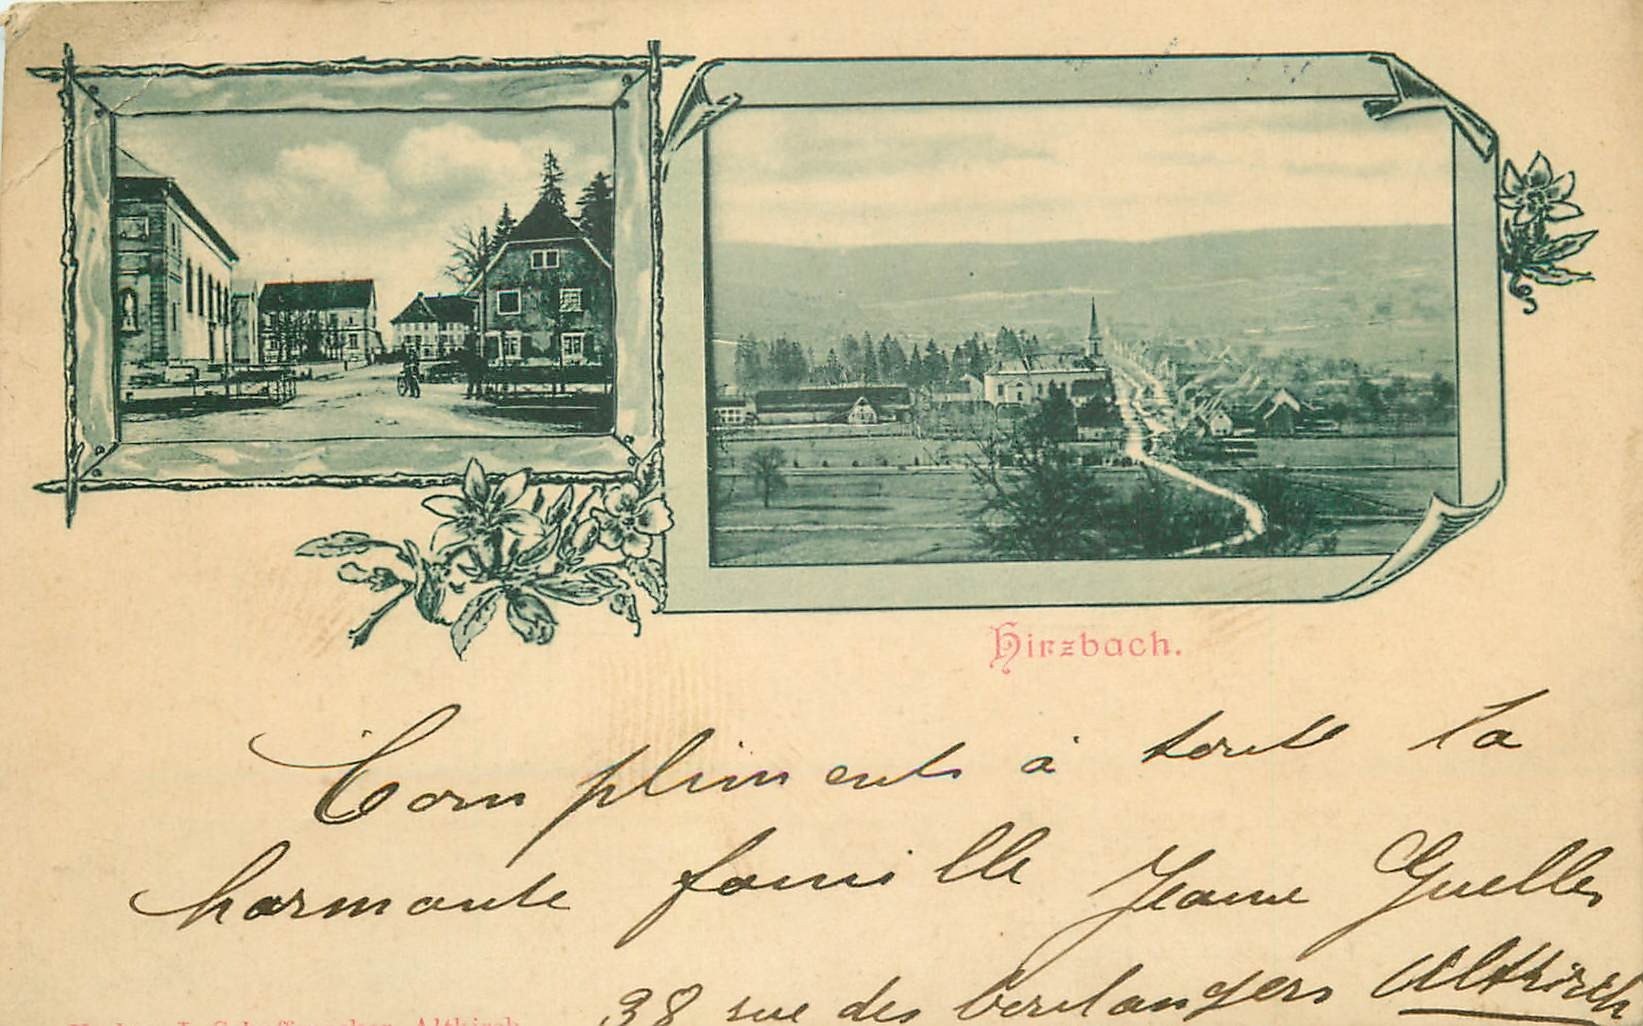 Hirzbach.
Compliments à toute la
charmante famille Jeanne Guelles
38 rue des boulangers Altkirch
Altkirch